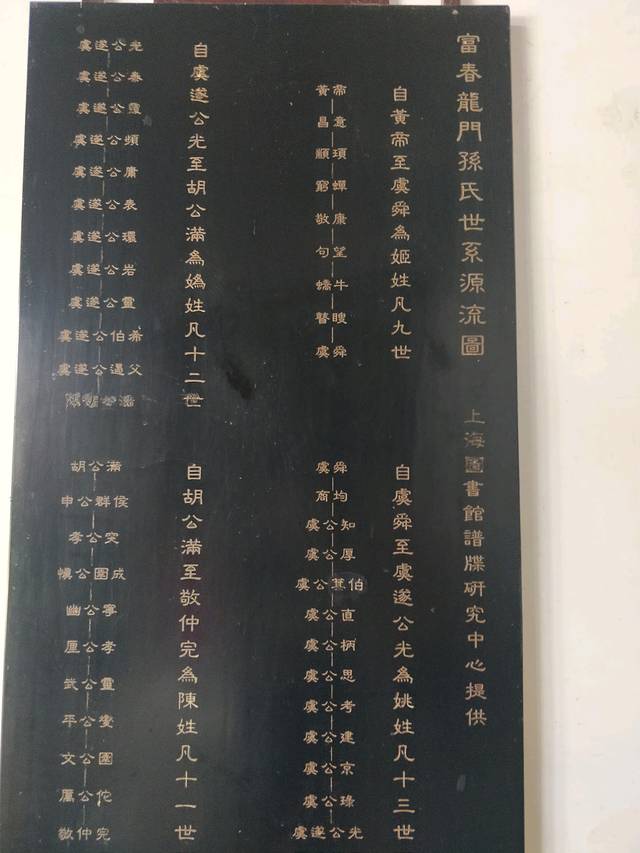 富春龍門孫氏世系源流圖
上海圖書館譜牒研究中心提供
自黃帝至虞舜為姬姓凡九世
黃帝
昌意
顓頊
窮蟬
敬康
句望
蟜牛
瞽瞍
虞舜
自虞舜至虞遂公光為姚姓凡十三世
虞舜
商均
虞公知
虞公厚
虞公箕伯
虞公直
虞公柄
虞公思
虞公考
虞公建
虞公京
虞公
虞遂公光
自虞遂公光至胡公滿為媯姓凡十二世
虞遂公光
虞遂公春
虞遂公靈
虞遂公頻
虞遂公庸
虞遂公表
虞遂公環
虞遂公岩
虞遂公靈
虞遂公伯希
虞遂公遏父
自胡公滿至敬仲完為陳姓凡十一世
胡公滿
申公群侯
孝公突
慎公圉成
幽公寧
厘公孝
武公靈
平公燮
文公圉
厲公佗
敬仲完